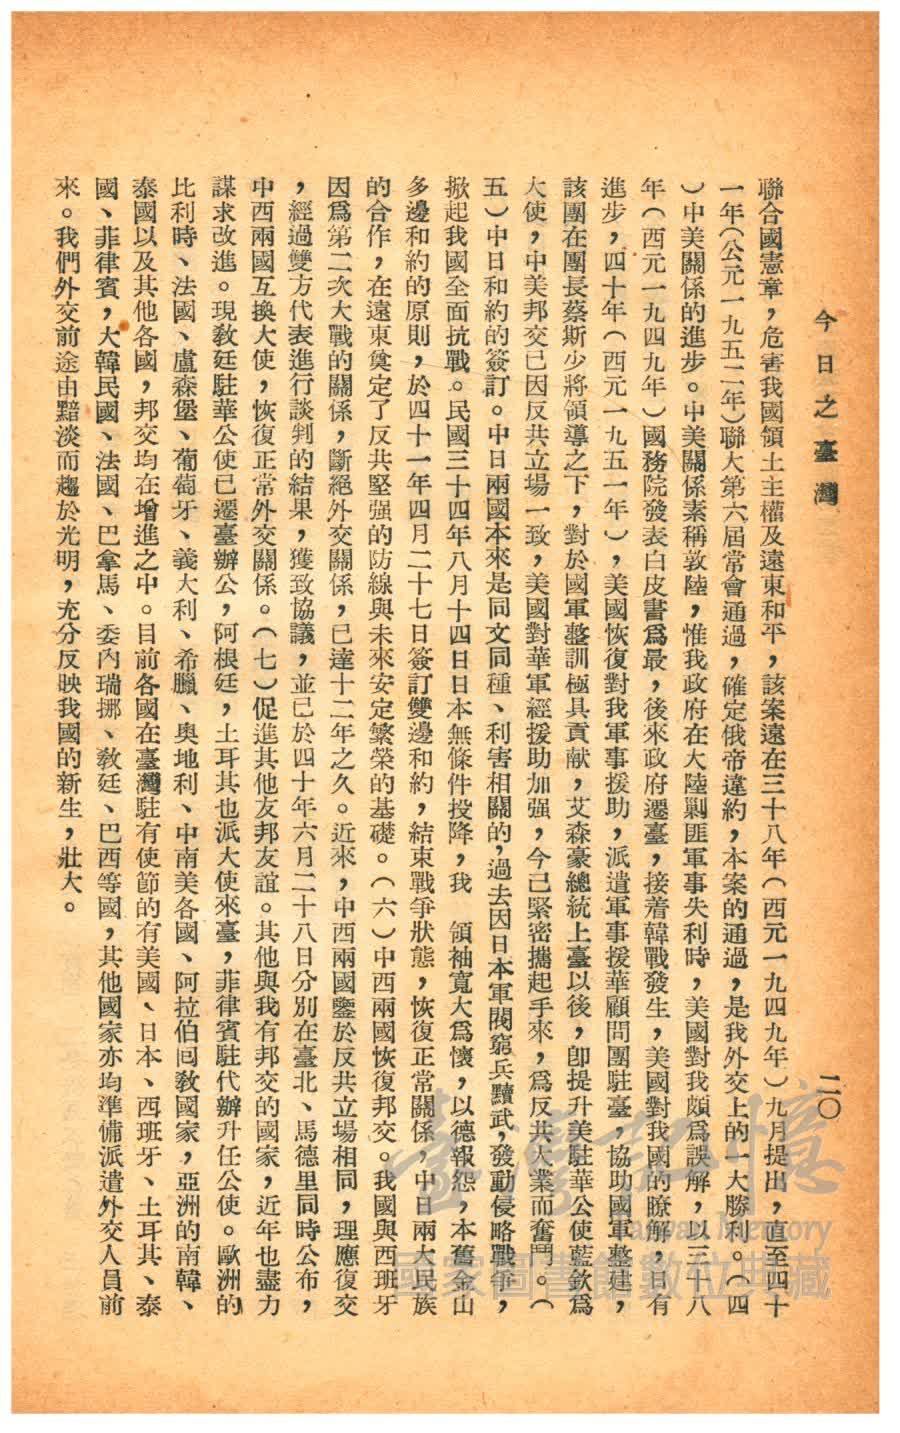 今日之臺灣
二〇
聯合國憲章，危害我國領土主權及遠東和平，該案遠在三十八年（西元一九四九年）九月提出，直至四十
一年（公元一九五二年）聯大第六屆常會通過，確定俄帝違約，本案的通過，是我外交上的一大勝利。（四
）中美關係的進步。中美關係素稱敦陸，惟我政府在大陸剿匪軍事失利時，美國對我頗爲誤解，以三十八
年（西元一九四九年）國務院發表白皮書爲最，後來政府遷臺，接着韓戰發生，美國對我國的瞭解，日有
進步，四十年（西元一九五一年），美國恢復對我軍事援助，派遣軍事援華顧問團駐臺，協助國軍整建，
該團在團長蔡斯少將領導之下，對於國軍整訓極具貢献，艾森豪總統上臺以後，卽提升美駐華公使藍欽爲
大使，中美邦交已因反共立場一致，美國對華軍經援助加强，今已緊密攜起手來，爲反共大業而奮鬥。（
五）中日和約的簽訂。中日兩國本來是同文同種、利害相關的，過去因日本軍閥窮兵黷武，發動侵略戰爭，
掀起我國全面抗戰。民國三十四年八月十四日日本無條件投降，我　領袖寬大爲懷，以德報怨，本舊金山
多邊和約的原則，於四十一年四月二十七日簽訂雙邊和約，結束戰爭狀態，恢復正常關係，中日兩大民族
的合作，在遠東奠定了反共堅强的防線與未來安定繁榮的基礎。（六）中西兩國恢復邦交。我國與西班牙
因爲第二次大戰的關係，斷絕外交關係，已達十二年之久。近來，中西兩國鑒於反共立場相同，理應復交
，經過雙方代表進行談判的結果，獲致協議，並已於四十年六月二十八日分別在臺北、馬德里同時公布，
中西兩國互換大使，恢復正常外交關係。（七）促進其他友邦友誼。其他與我有邦交的國家，近年也盡力
謀求改進。現敎廷駐華公使已遷臺辦公，阿根廷，土耳其也派大使來臺，菲律賓駐代辦升任公使。歐洲的
比利時、法國、盧森堡、葡萄牙、義大利、希臘、奧地利、中南美各國、阿拉伯回敎國家，亞洲的南韓、
泰國以及其他各國，邦交均在增進之中。目前各國在臺灣駐有使節的有美國、日本、西班牙、土耳其、泰
國、菲律賓，大韓民國、法國、巴拿馬、委內瑞挪、敎廷、巴西等國，其他國家亦均準備派遣外交人員前
來。我們外交前途由黯淡而趨於光明，充分反映我國的新生，壯大。
臺灣記憶
Taiwan Memory
國家圖書館數位典藏